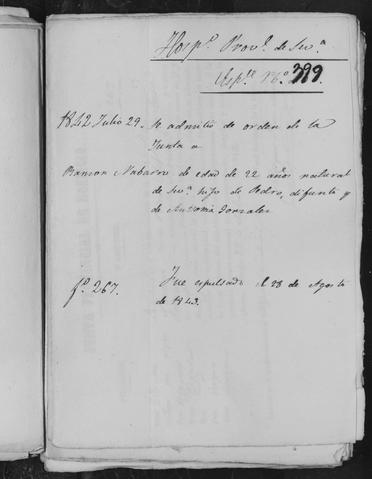 Hosp.l Prov.l de Sev.a
Esp.te N.o 399.
1842 Julio 29. Se admitio de orden de la
Junta a
Ramon Nabarro de edad de 22 años natural
de Sev.a hijo de Pedro, difunto y
de Antonia Gonzalez
f.o 267. Fue espulsado el 28 de Agosto
de 1843.